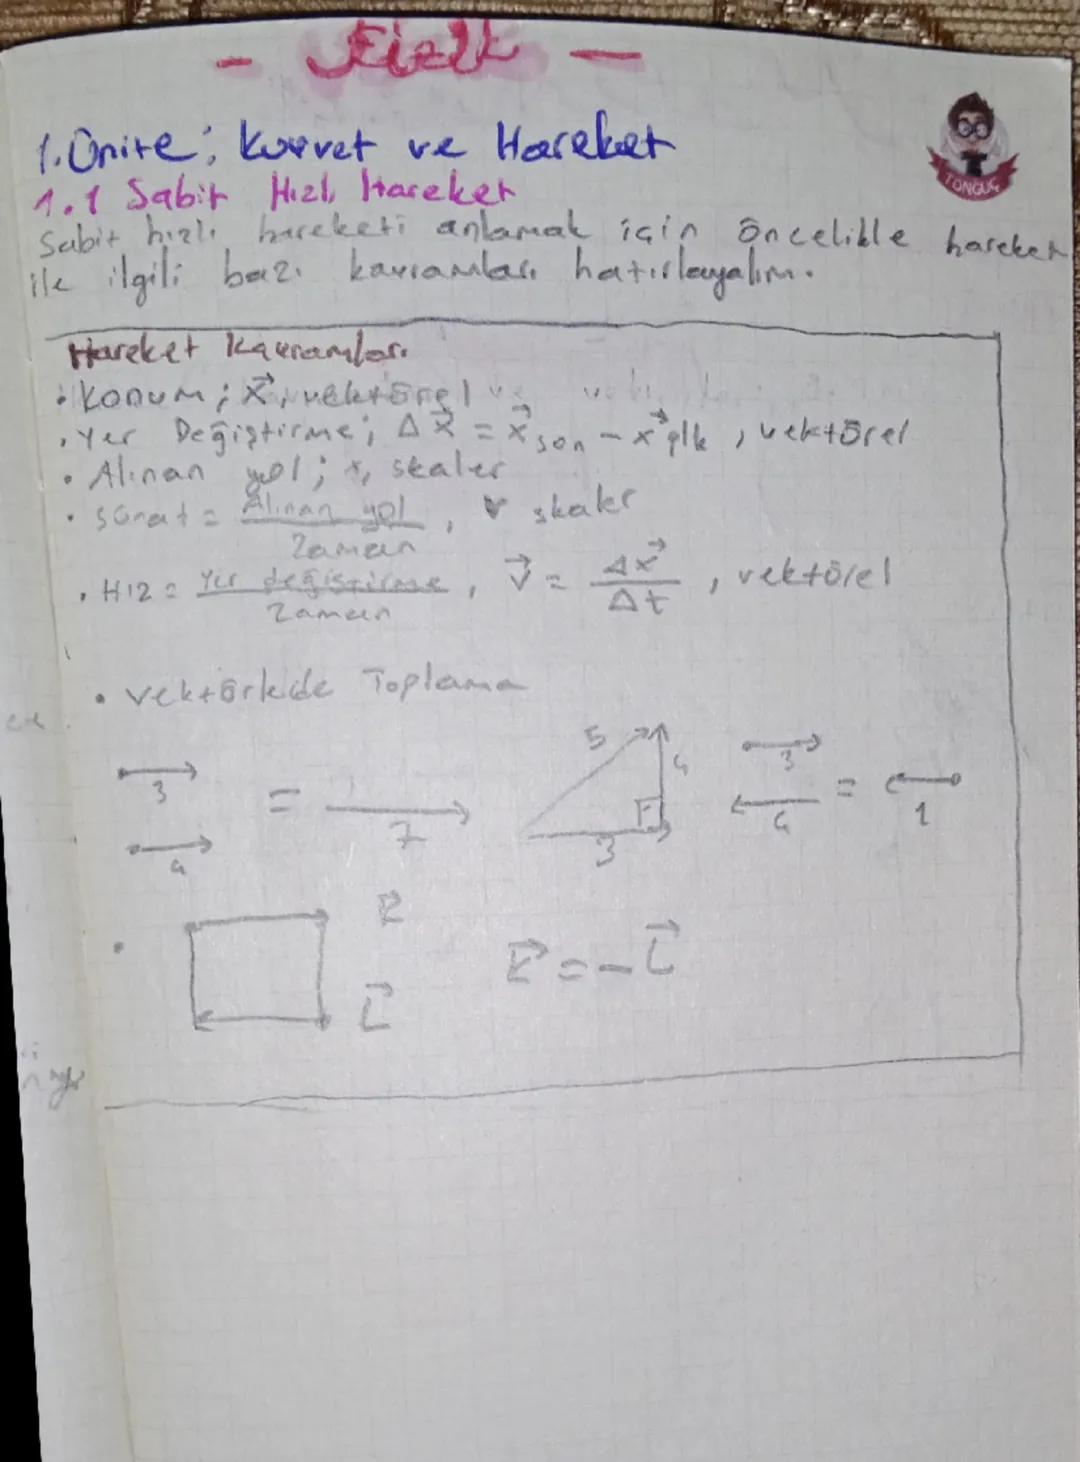 - Fizik -
1. Ünite; Kuvvet ve Hareket
TONGUÇ
1.1 Sabit Hızlı Hareket
Sabit hızlı hareketi anlamak için öncelikle hareket
ile ilgili bazı kavramları hatırlayalım.
Hareket Kavramları
• Konum; x⃗, vektörel
• Yer Değiştirme; Δx⃗ = x⃗son - x⃗ilk, vektörel
• Alınan yol; x, skaler
• Sürat = Alınan yol / Zaman, v skaler
• Hız = Yer değiştirme / Zaman, v⃗ = Δx⃗ / Δt, vektörel
• Vektörlerde Toplama
3 4 = 7
5 4 3
3 4 = 1
• K⃗ L⃗ K⃗ = -L⃗